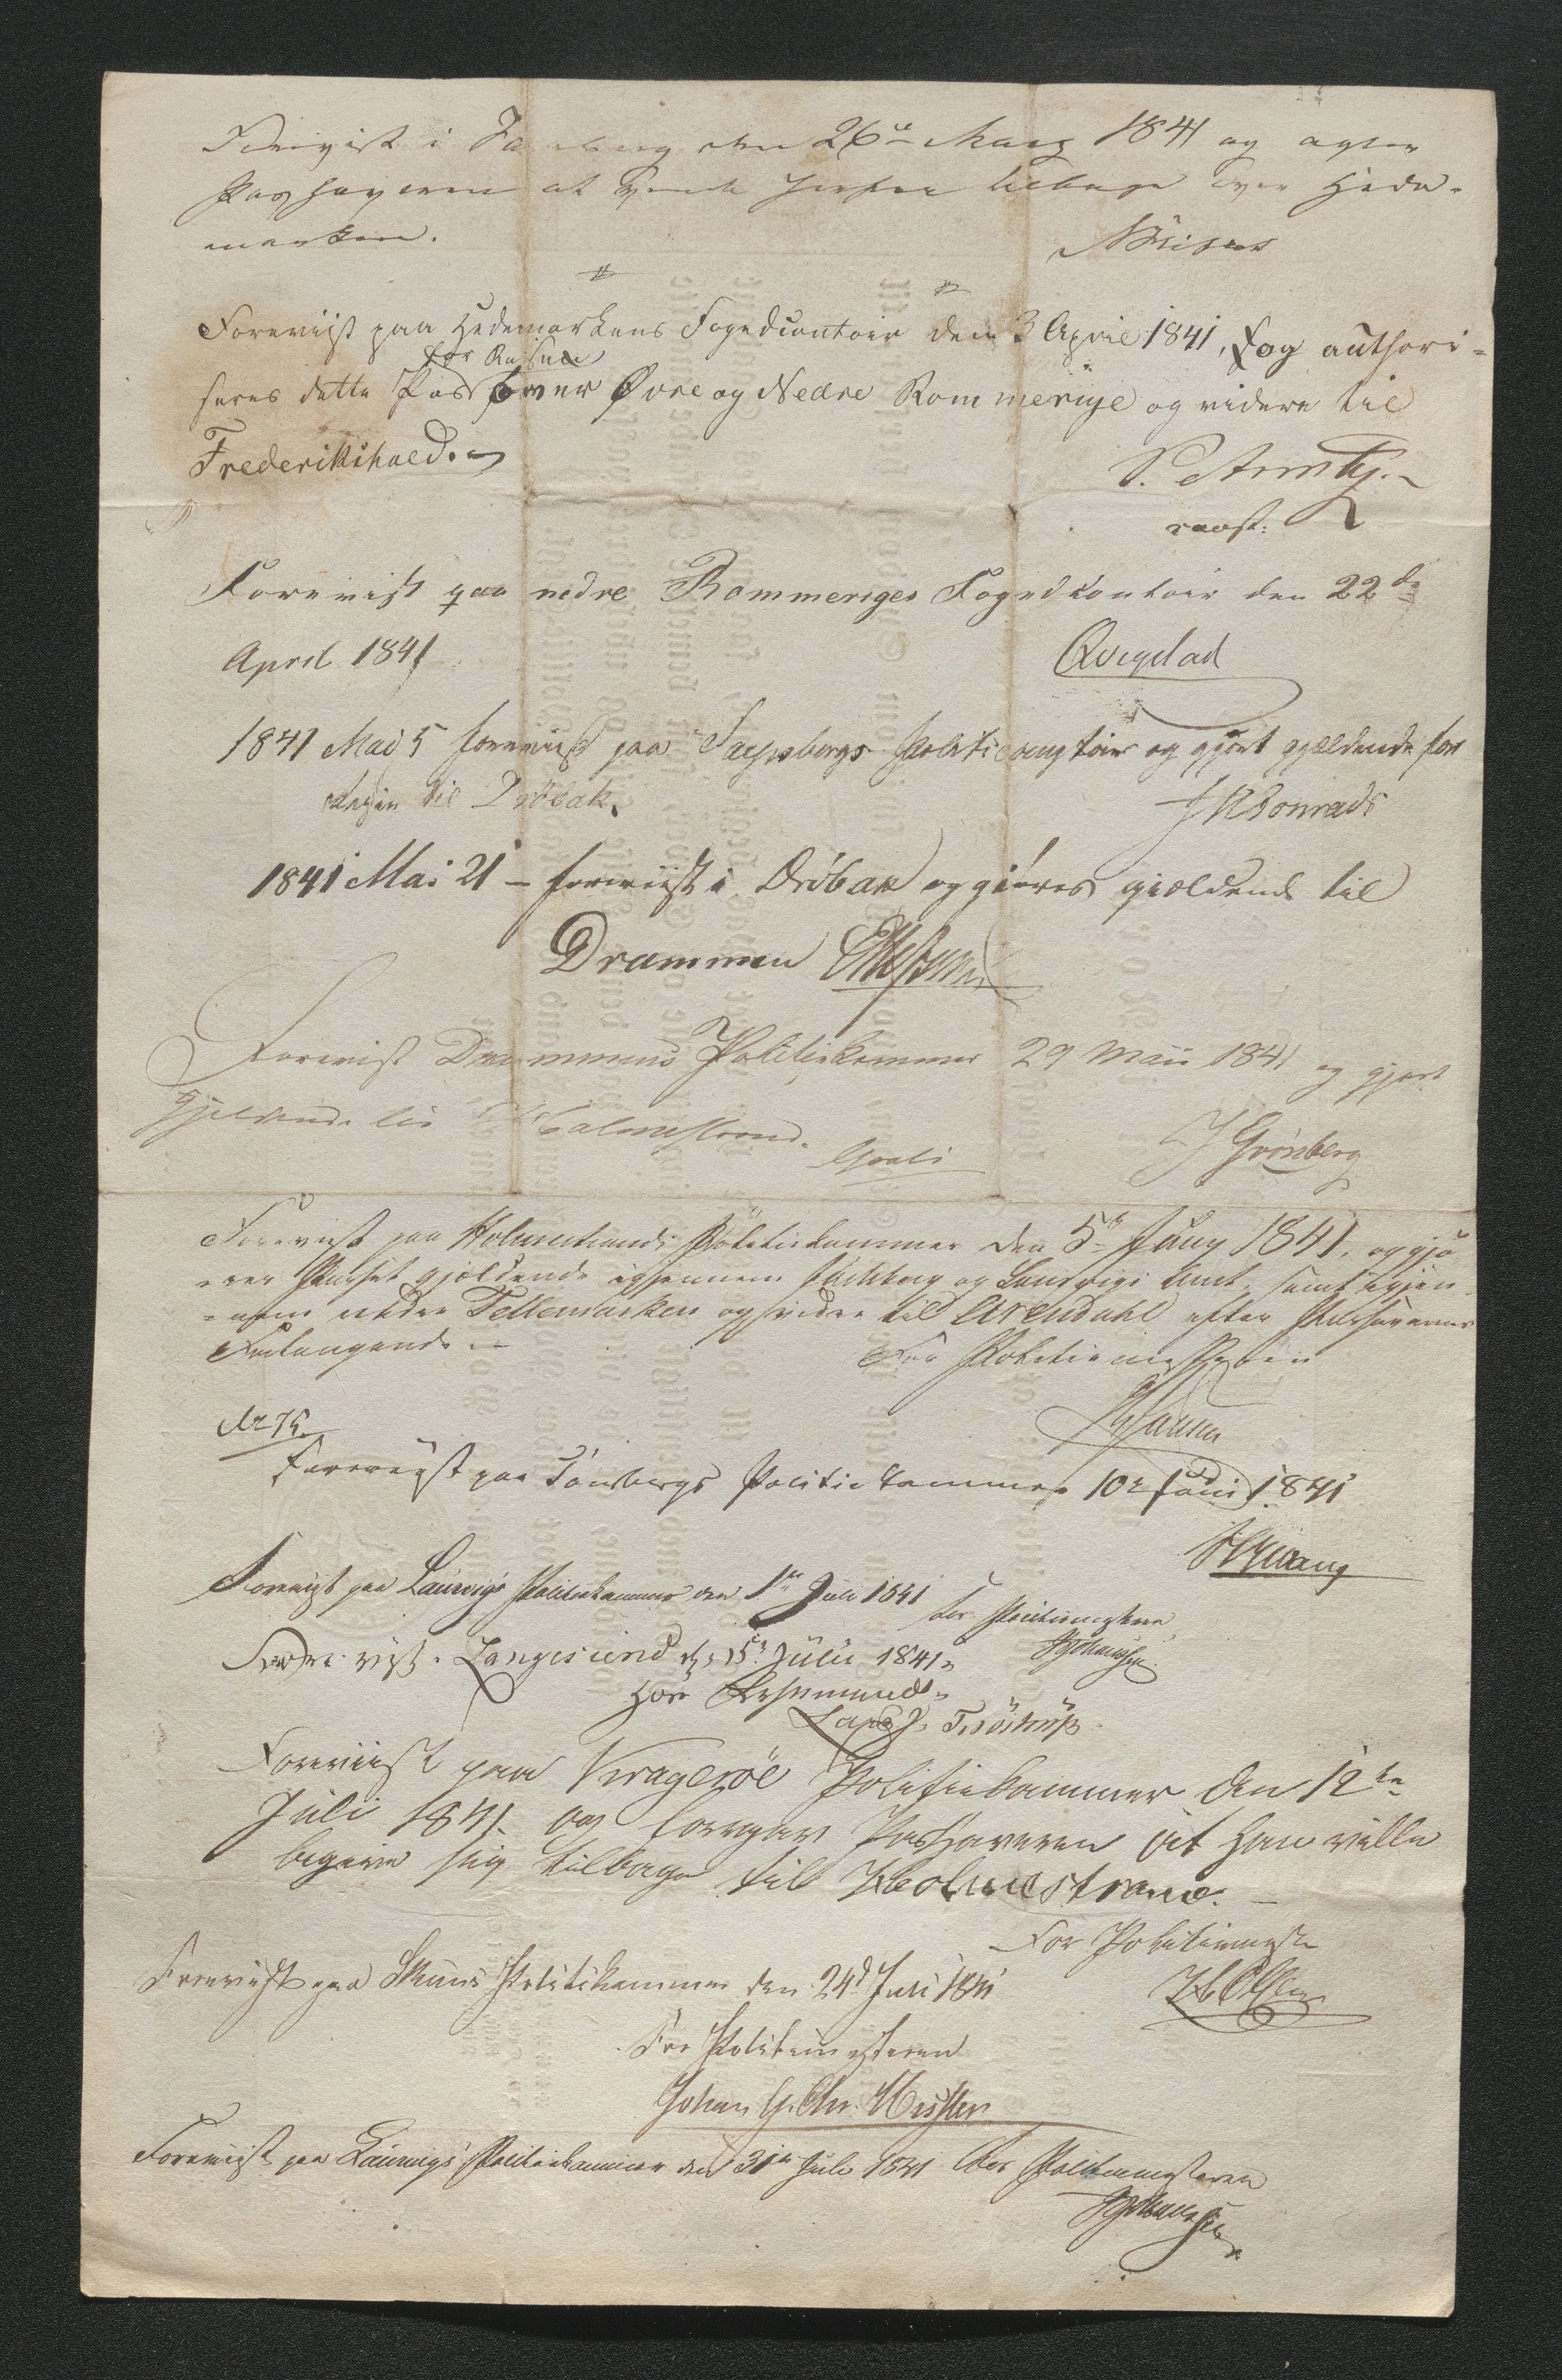 Foreviist i den 26de Marz 1841 og agter
Pashaveren at vende herfra tilbage over Hede-
marken.
Foreviist paa Hedemarkens Fogedcontoir den 3 April 1841, og authori-
for Reisen
seres dette Pas over Øvre og Nedre Rommerige og videre til
Frederikshald.
const:
Forevist paa nedre Rommeriges Fogedkontoir den 22de
April 1841
Qvigstad
1841 Mai 5 foreviist paa Sarpsborgs Politicomptoir og gjort gjældende for
Reisen til Drøbak.
1841 Mai 21 – foreviist i Drøbak og giøres gieldende til
Drammen
Forevist Drammens Politiekammer 29 Maii 1841 og gjort
gjeldende til Holmestrand.
Gratis
J Grønberg
Forevist paa Holmestrands Politiekammer den 5te Juny 1841, og gjø-
res Passet gjældende igjennem Jarlsberg og Laurvigs Amt, samt igjen-
nem nedre Tellemarken og videre til Arendahl efter Pashaverens
Forlangende.
For Politiemesteren
No 75.
Foreviist paa Tønsbergs Politiekammer 10de Juni 1841
Foreviist paa Laurvigs Politiekammer den 1ste Juli 1841
For Politiemesteren
Foreviist. Langesund d. 5te Julii 1841.
Foreviist paa Kragerøe Politiekammer den 12te
Juli 1841 og foregav Pashaveren at han ville
begive sig tilbage til Holmestrand.
For Politiemester
Forevist paa Skiens Politikammer den 24de Juli 1841
For Politimesteren
Johan G. Chr.
Foreviist paa Laurvigs Politiekammer den 31te Juli 1841 For Politiemesteren